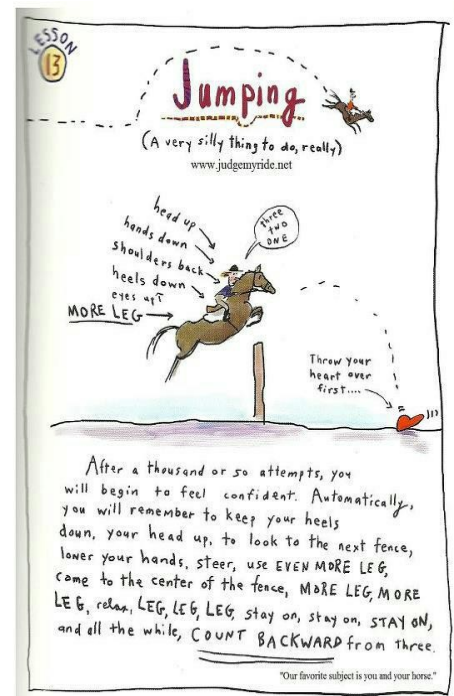 LESSON
13
Jumping
(A very silly thing to do, really)
www.judgemyride.net
head up
hands down
shoulders back
heels down
eyes up
MORE LEG
three
TWO
ONE
Throw your
heart over
first....
After a thousand or so attempts, you
will begin to feel confident. Automatically,
you will remember to keep your heels
down, your head up, to look to the next fence,
lower your hands, steer, use EVEN MORE LEG,
come to the center of the fence, MORE LEG, MORE
LEG, relax, LEG, LEG, LEG, stay on, stay on, STAY ON,
and all the while, COUNT BACKWARD from three.
"Our favorite subject is you and your horse."